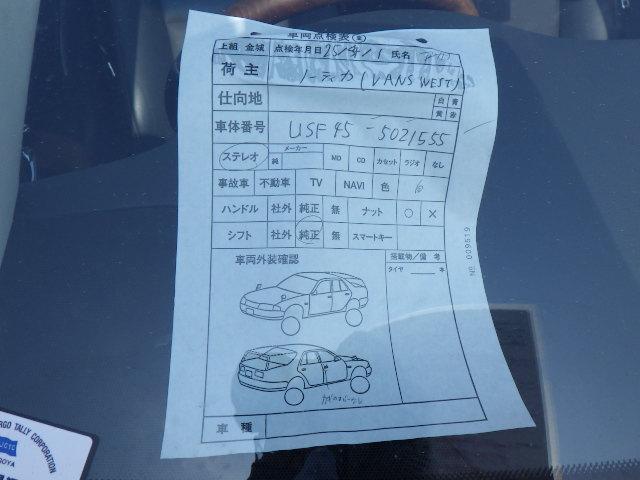 車両点検表
上組 金城 点検年月日 25/4/1 氏名
荷主 ノーティカ (VANS WEST)
仕向地 白 青
黄 赤
車体番号 USF45-5021555
ステレオ 純 メーカー MD CD カセット ラジオ なし
事故車 不動車 TV NAVI 色 6
ハンドル 社外 純正 無 ナット ○ ×
シフト 社外 純正 無 スマートキー
車両外装確認 搭載物/備考
タイヤ 本
№ 009519
車種
RGO TALLY CORPORATION
JCTC
GOYA